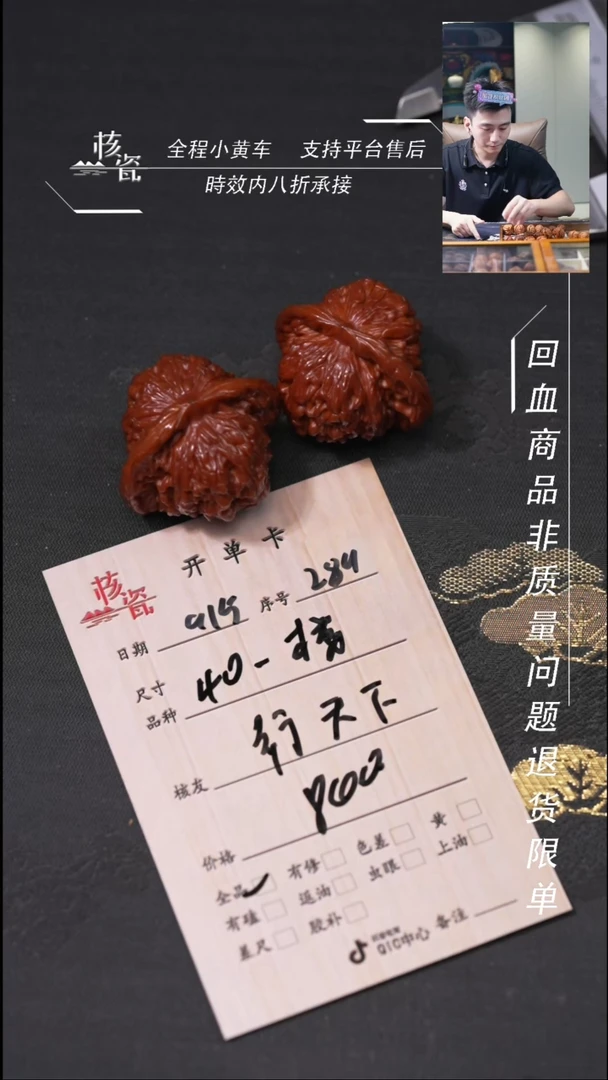 核瓷
全程小黄车 支持平台售后
時效内八折承接
回血商品非质量问题退货限单
核瓷
开单卡
日期 919 序号 284
尺寸
品种 40-
核友 行天下
价格 900
全品 有修 色差 黄
有磕 返油 虫眼 上油
差尺 胶补
QIC中心 备注